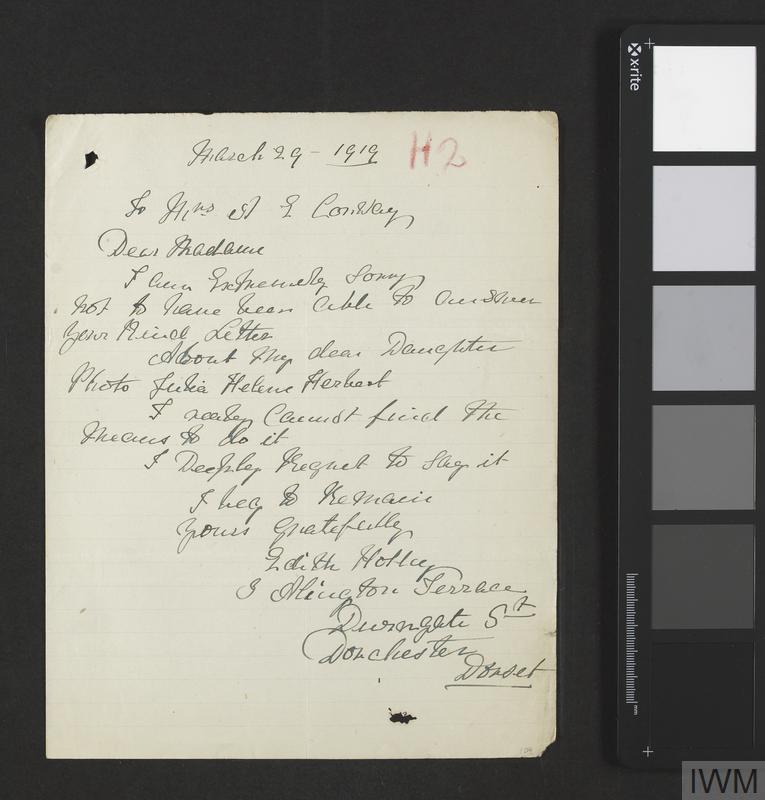 March 29 - 1919
H2
To Mrs E Conway
Dear Madam
I am Extremely Sorry
not to have been able to answer
your Kind Letter
About My dear Daughter
Photo Julia Helene Herbert
I really Cannot find the
Means to do it
I Deeply Regret to say it
I beg to Remain
yours gratefully
Edith Holley
Alington Terrace
Durngate St
Dorchester
Dorset
x-rite
mm
IWM